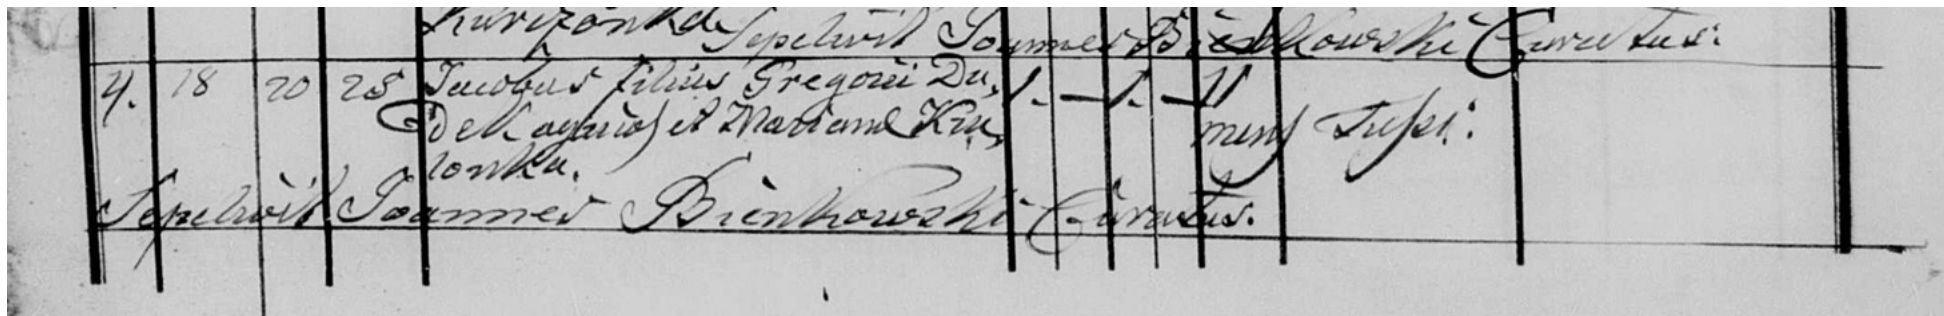 Kurczonka Sepelivit Joannes Bienkowski Curatus.
4. 18 20 28 Jacobus filius Gregorii Du, 1. — 1. — 11
et Marianæ Kru,
lonka. mens Tussi:
Sepelivit Joannes Bienkowski Curatus.